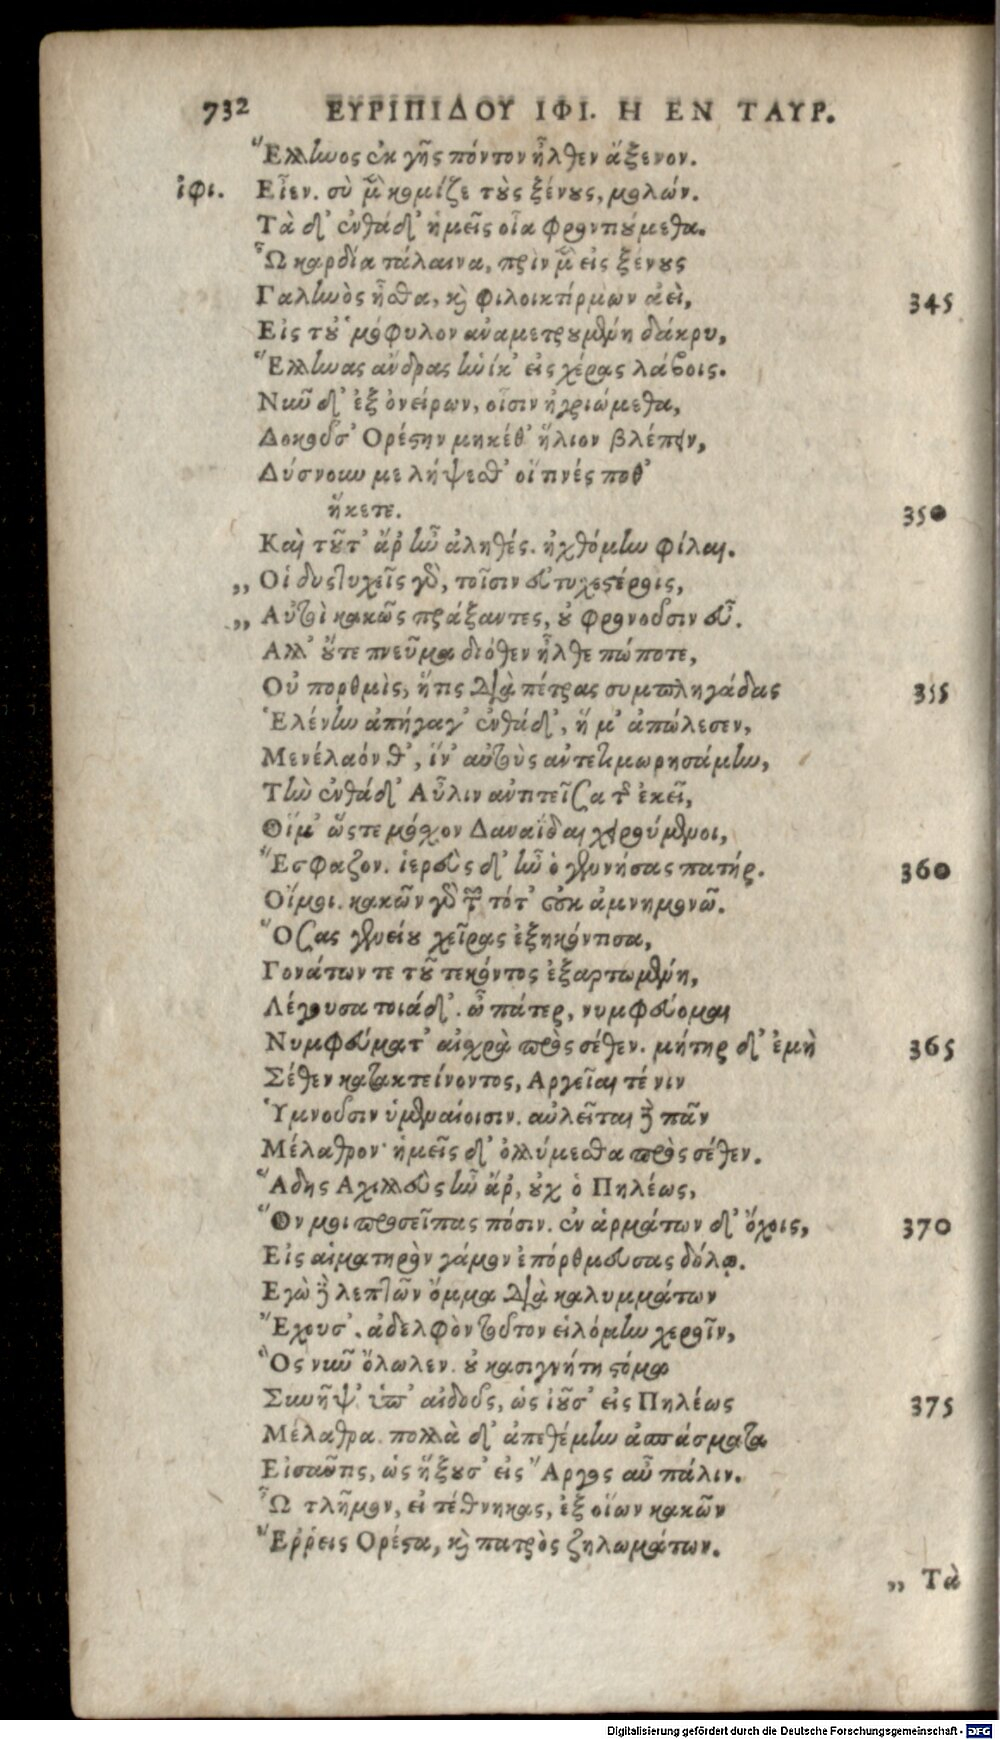 732 ΕΥΡΙΠΙΔΟΥ ΙΦΙ. Η ΕΝ ΤΑΥΡ.
Ἕλλωος ἐκ γῆς πόντον ἦλθεν ἄξενον.
ἰφι. Εἶεν. σὺ μὲν κόμιζε τοὺς ξένους, μολών.
Τὰ δ' ἐνθάδ' ἡμεῖς οἷα φροντιούμεθα.
Ὦ καρδία τάλαινα, πρὶν μὲν εἰς ξένους
Γαλωὸς ἦσθα, καὶ φιλοικτίρμων ἀεὶ, 345
Εἰς τοὐμόφυλον ἀναμετρουμένη δάκρυ,
Ἕλλωας ἄνδρας ἡνίκ' εἰς χέρας λάβοις.
Νῦν δ' ἐξ ὀνείρων, οἷσιν ἠγριώμεθα,
Δοκοῦσ' Ορέστην μηκέθ' ἥλιον βλέπειν,
Δύσνοιω με λήψεσθ' οἵ τινές ποθ'
ἥκετε. 350
Καὶ τοῦτ' ἄρ' ἦν ἀληθές. ἠχθόμην φίλαι.
„ Οἱ δυστυχεῖς γὰρ, τοῖσιν εὐτυχεστέροις,
„ Αὐτοὶ κακῶς πράξαντες, οὐ φρονοῦσιν εὖ.
Αλλ' οὔτε πνεῦμα διόθεν ἦλθε πώποτε,
Οὐ πορθμὶς, ἥτις διὰ πέτρας συμπληγάδας 355
Ἑλένην ἀπήγαγ' ἐνθάδ', ἥ μ' ἀπώλεσεν,
Μενέλαόν θ', ἵν' αὐτοὺς ἀντετιμωρησάμην,
Τὴν ἐνθάδ' Αὖλιν ἀντιτεῖσα τῆς ἐκεῖ,
Οἷ μ' ὥστε μόσχον Δαναΐδαι χειρούμενοι,
Ἔσφαζον. ἱερεὺς δ' ἦν ὁ γεννήσας πατήρ. 360
Οἴμοι. κακῶν γὰρ τῶν τότ' οὐκ ἀμνημονῶ.
Ὅσας γενείου χεῖρας ἐξηκόντισα,
Γονάτων τε τοῦ τεκόντος ἐξαρτωμένη,
Λέγουσα τοιάδ'. ὦ πάτερ, νυμφεύομαι
Νυμφεύματ' αἰσχρὰ πρὸς σέθεν. μήτηρ δ' ἐμὴ 365
Σέθεν κατακτείνοντος, Αργεῖαί τέ νιν
Ὑμνοῦσιν ὑμεναίοισιν. αὐλεῖται δὲ πᾶν
Μέλαθρον· ἡμεῖς δ' ὀλλύμεσθα πρὸς σέθεν.
Ἅδης Αχιλλεὺς ἦν ἄρ', οὐχ ὁ Πηλέως,
Ὅν μοι προσεῖπας πόσιν. ἐν ἁρμάτων δ' ὄχοις, 370
Εἰς αἱματηρὸν γάμον ἐπόρθμευσας δόλῳ.
Εγὼ δὲ λεπτῶν ὄμμα διὰ καλυμμάτων
Ἔχουσ'. ἀδελφὸν τοῦτον εἱλόμην χεροῖν,
Ὃς νῦν ὄλωλεν. οὐ κασιγνήτῃ στόμα
Σωῆψ' ὑπ' αἰδοῦς, ὡς ἰοῦσ' εἰς Πηλέως 375
Μέλαθρα. πολλὰ δ' ἀπεθέμην ἀσπάσματα
Εἰσαῦτις, ὡς ἥξουσ' εἰς Ἄργος αὖ πάλιν.
Ὦ τλῆμον, εἰ τέθνηκας, ἐξ οἵων κακῶν
Ἔῤῥεις Ορέστα, καὶ πατρὸς ζηλωμάτων.
„ Τὰ
Digitalisierung gefördert durch die Deutsche Forschungsgemeinschaft - DFG